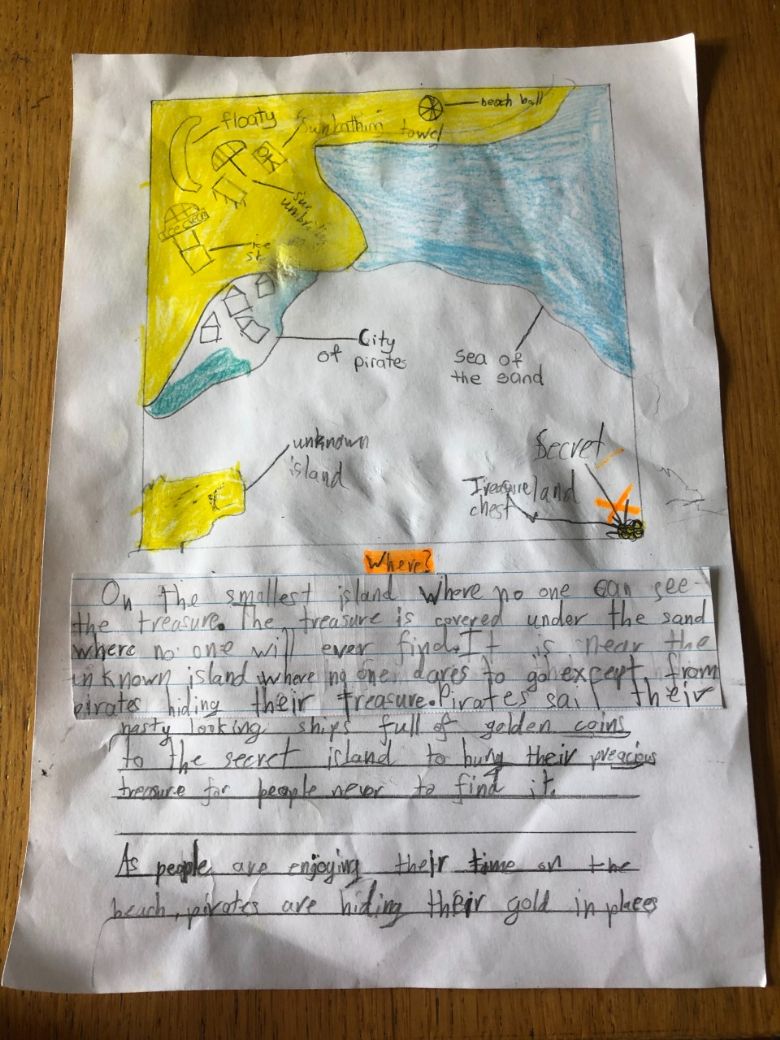 beach ball
floaty
Sunbathing towel
sun
umbrella
Ice cream
ice
st
City
of pirates
Sea of
the sand
unknown
island
Secret
land
Treasure
chest
Where?
On the smallest island where no one can see
the treasure. The treasure is covered under the sand
where no one will ever find. It is near the
unknown island where no one dares to go except from
pirates hiding their treasure. Pirates sail their
nasty looking ships full of golden coins
to the secret island to bury their preacious
treasure for people never to find it.
As people are enjoying their time on the
beach, pirates are hiding their gold in places